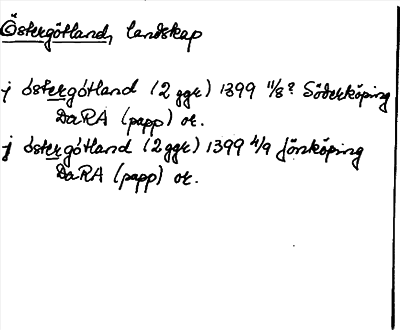 Östergötland, landskap
j östergötland (2 ggr) 1399 11/8? Söderköping
DaRA (papp) or.
j östergötland (2 ggr) 1399 4/9 Jönköping
DaRA (papp) or.